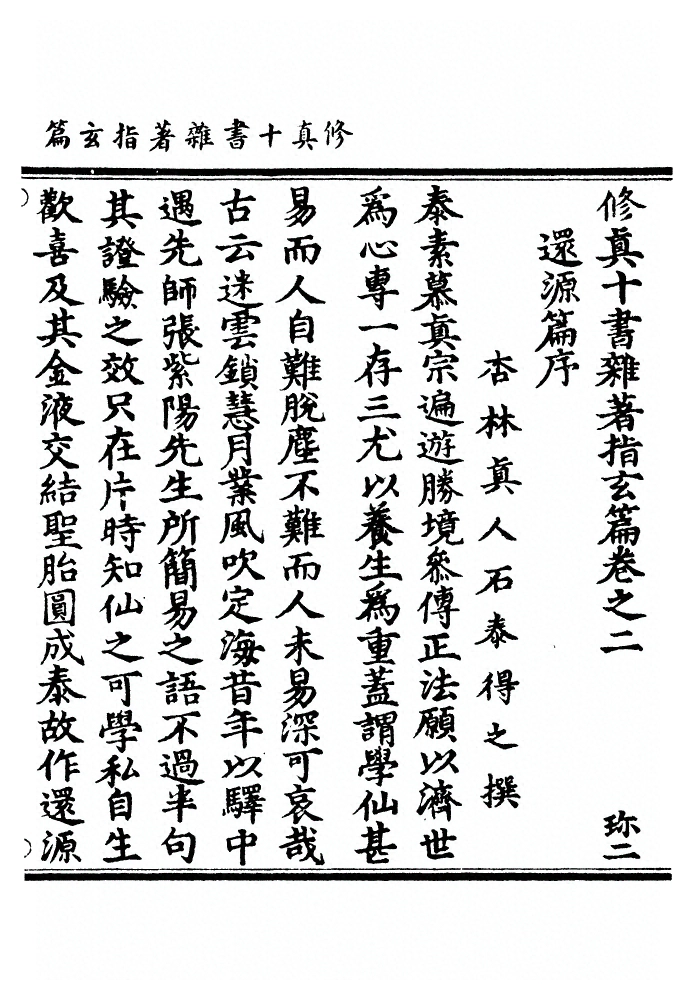 修真十書雜著指玄篇
修真十書雜著指玄篇卷之二 珎二
還源篇序
杏林真人石泰得之撰
泰素慕真宗遍遊勝境參傳正法願以濟世
爲心專一存三尤以養生爲重蓋謂學仙甚
易而人自難脫塵不難而人未易深可哀哉
古云迷雲鎖慧月業風吹定海昔年以驛中
遇先師張紫陽先生所簡易之語不過半句
其證驗之效只在片時知仙之可學私自生
歡喜及其金液交結聖胎圓成泰故作還源